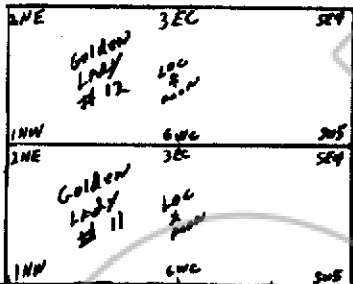 2NE 3EC SE4
Golden
Lady
# 12
LOC
&
MON
1NW 6WC SW5
2NE 3EC SE4
Golden
Lady
# 11
LOC
&
MON
1NW 6WC SW5